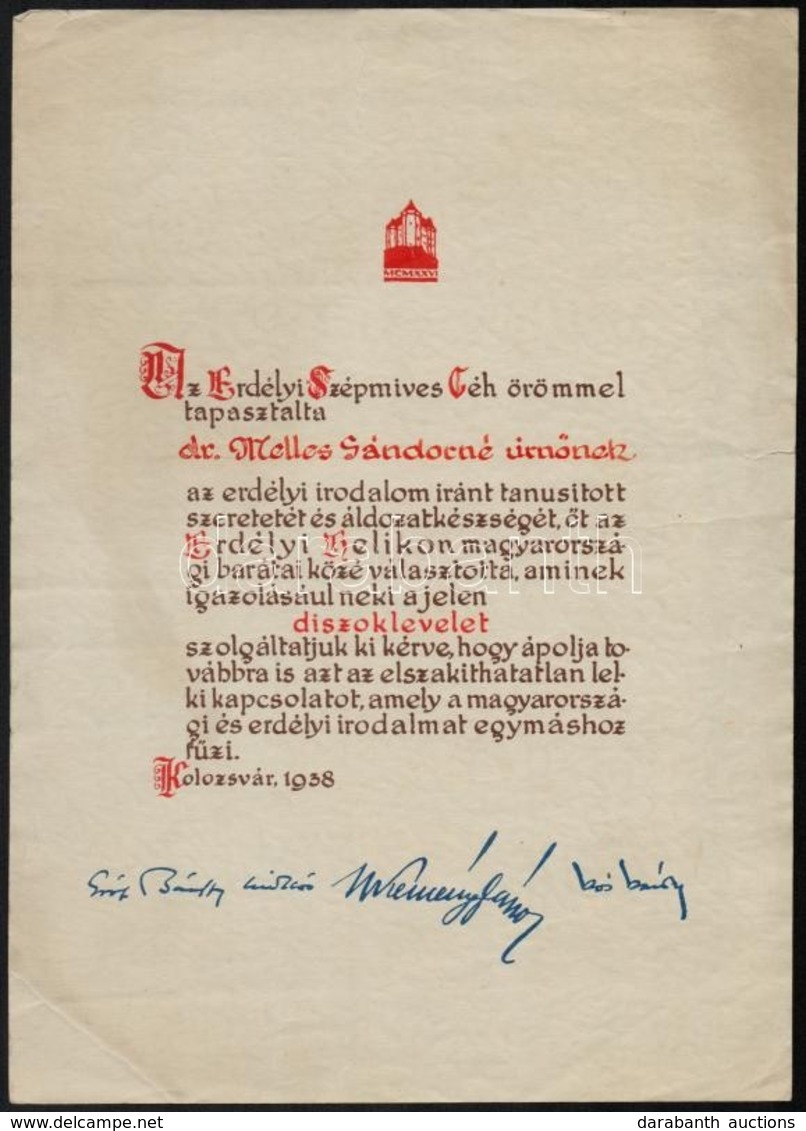 MCMXXVI
Az Erdélyi Szépmives Céh örömmel
tapasztalta
dr. Melles Sándorné úrnőnek
az erdélyi irodalom iránt tanusitott
szeretetét és áldozatkészségét, őt az
Erdélyi Helikon magyarorszá-
gi barátai közé választotta, aminek
igazolásául neki a jelen
diszoklevelet
szolgáltatjuk ki kérve, hogy ápolja to-
vábbra is azt az elszakithatatlan lel-
ki kapcsolatot, amely a magyarorszá-
gi és erdélyi irodalmat egymáshoz
fűzi.
Kolozsvár, 1938
Gróf Bánffy Miklós Kemény János Kós Károly
darabanth
delcampe.net
darabanth auctions